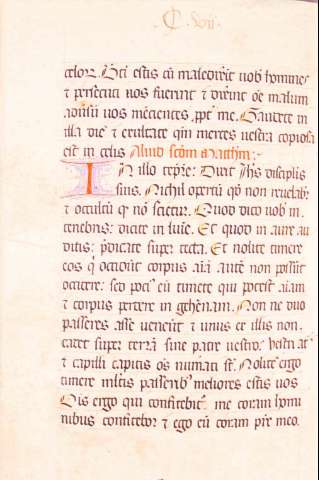 C. vii.
celoꝝ. Bt̄i estis cū maledixīt uob̄ homines
⁊ persecuti uos fuerint ⁊ dixīnt om̄e malum
aduersū uos mēcientes ꝓpt̄ me. Gaudete in
illa die ⁊ exultate qm̄ merces uestra copiosa
est in celis Aliud scdm̄ Matthm̄:
In illo tēpre: Dixit Jhs disciplis
suis. Nichil opertū qđ non reuelab̄r
⁊ occultū qđ nō scietur. Quod dico uob̄ in
tenebris: dicite in luīe. Et quod in aure au
ditis: p̄dicate super tecta. Et nolite timere
eos q̄ occidūt corpus aīā autē non possūt
occidere: sed poci᷒ eū timete qui potest aīam
⁊ corpus perdere in gehēnam. Non ne duo
passeres asse ueneūt ⁊ unus ex illis non
cadet super terrā sine patre uestro: uestri at̄
⁊ capilli capitis oēs numati st̄. Nolite ergo
timere multis passerib᷒ meliores estis uos
Ois ergo qui confitebit᷒ me coram homi
nibus confitebor ⁊ ego eū coram pr̄e meo.